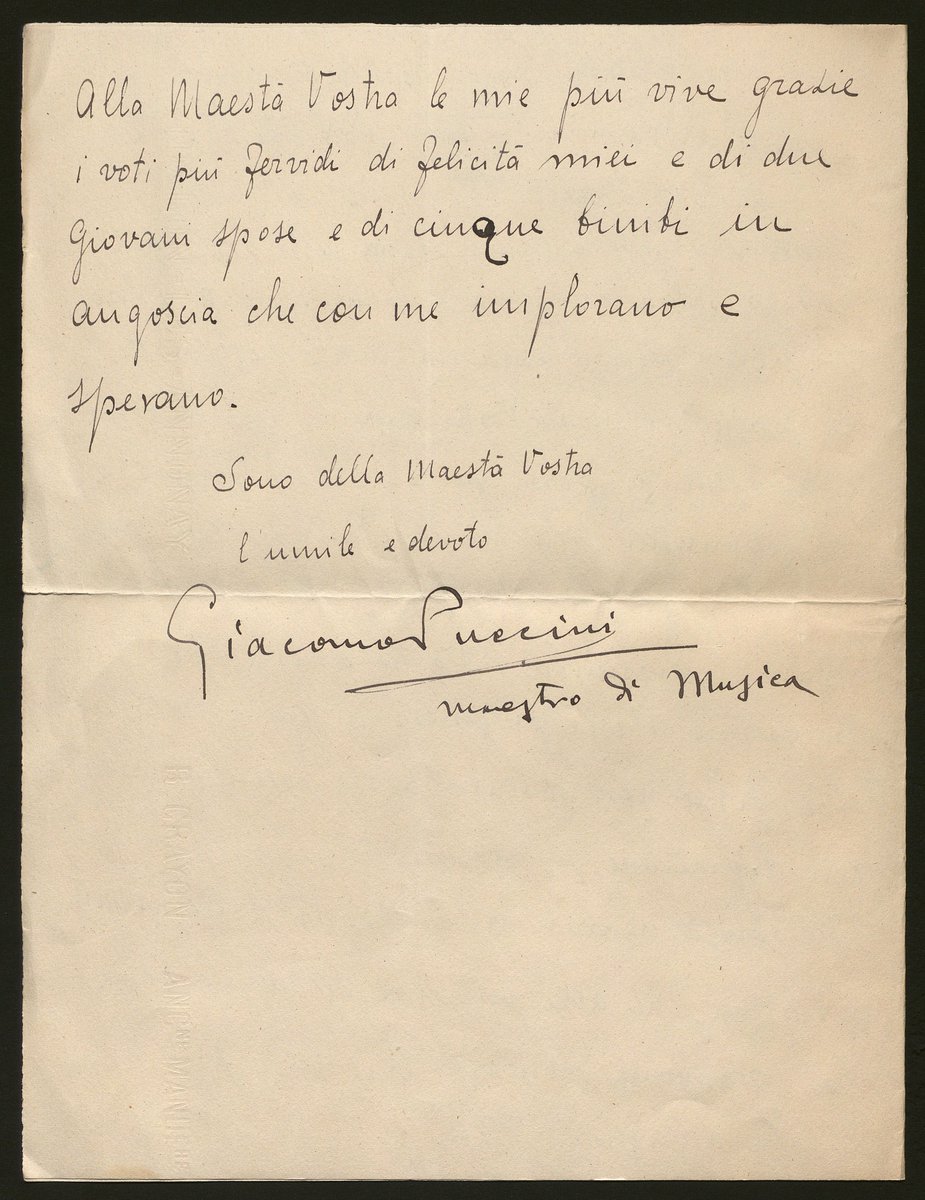 Alla Maestà Vostra le mie più vive grazie
i voti più fervidi di felicità miei e di due
giovani spose e di cinque bimbi in
angoscia che con me implorano e
sperano.
Sono della Maestà Vostra
l'umile e devoto
Giacomo Puccini
maestro di Musica
B. CRAYON